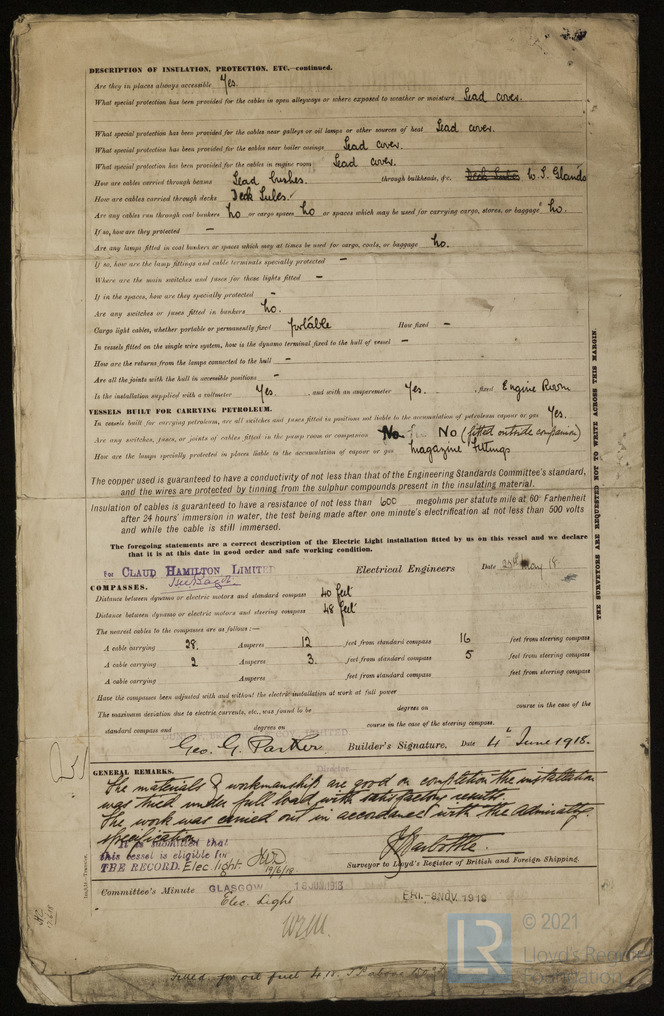 DESCRIPTION OF INSULATION, PROTECTION, ETC.—continued.
Are they in places always accessible Yes.
What special protection has been provided for the cables in open alleyways or where exposed to weather or moisture Lead cover.
What special protection has been provided for the cables near galleys or oil lamps or other sources of heat Lead cover.
What special protection has been provided for the cables near boiler casings Lead cover.
What special protection has been provided for the cables in engine room Lead cover.
How are cables carried through beams Lead bushes. through bulkheads, &c. W. T. Glands
How are cables carried through decks Deck Tubes.
Are any cables run through coal bunkers No or cargo spaces No or spaces which may be used for carrying cargo, stores, or baggage No.
If so, how are they protected —
Are any lamps fitted in coal bunkers or spaces which may at times be used for cargo, coals, or baggage No.
If so, how are the lamp fittings and cable terminals specially protected —
Where are the main switches and fuses for these lights fitted —
If in the spaces, how are they specially protected —
Are any switches or fuses fitted in bunkers No.
Cargo light cables, whether portable or permanently fixed portable How fixed —
In vessels fitted on the single wire system, how is the dynamo terminal fixed to the hull of vessel —
How are the returns from the lamps connected to the hull —
Are all the joints with the hull in accessible positions —
Is the installation supplied with a voltmeter Yes. , and with an amperemeter Yes. , fixed Engine Room
VESSELS BUILT FOR CARRYING PETROLEUM.
In vessels built for carrying petroleum, are all switches and fuses fitted in positions not liable to the accumulation of petroleum vapour or gas Yes.
Are any switches, fuses, or joints of cables fitted in the pump room or companion No (fitted outside companion)
How are the lamps specially protected in places liable to the accumulation of vapour or gas magazine fittings
The copper used is guaranteed to have a conductivity of not less than that of the Engineering Standards Committee's standard,
and the wires are protected by tinning from the sulphur compounds present in the insulating material.
Insulation of cables is guaranteed to have a resistance of not less than 600 megohms per statute mile at 60° Farhenheit
after 24 hours' immersion in water, the test being made after one minute's electrification at not less than 500 volts
and while the cable is still immersed.
The foregoing statements are a correct description of the Electric Light installation fitted by us on this vessel and we declare
that it is at this date in good order and safe working condition.
For CLAUD HAMILTON LIMITED Electrical Engineers Date 25th May 18.
COMPASSES.
Distance between dynamo or electric motors and standard compass 40 feet
Distance between dynamo or electric motors and steering compass 48 feet
The nearest cables to the compasses are as follows:—
A cable carrying 28. Amperes 12 feet from standard compass 16 feet from steering compass
A cable carrying 2 Amperes 3. feet from standard compass 5 feet from steering compass
A cable carrying Amperes feet from standard compass feet from steering compass
Have the compasses been adjusted with and without the electric installation at work at full power
The maximum deviation due to electric currents, etc., was found to be degrees on course in the case of the
standard compass and degrees on course in the case of the steering compass.
Geo. G. Parker Builder's Signature. Date 4th June 1918.
Director.
GENERAL REMARKS.
The materials & workmanship are good on completion the installation
was tried under full load with satisfactory results.
The work was carried out in accordance with the Admiralty
specification
It is submitted that
this vessel is eligible for
THE RECORD. Elec light 19/6/18
Surveyor to Lloyd's Register of British and Foreign Shipping.
Committee's Minute GLASGOW 18 JUN. 1918 FRI. - 8 NOV. 1918
Elec. Light
THE SURVEYORS ARE REQUESTED NOT TO WRITE ACROSS THIS MARGIN.
LR
© 2021
Lloyd's Register
Foundation
Fitted for oil fuel 4.18.